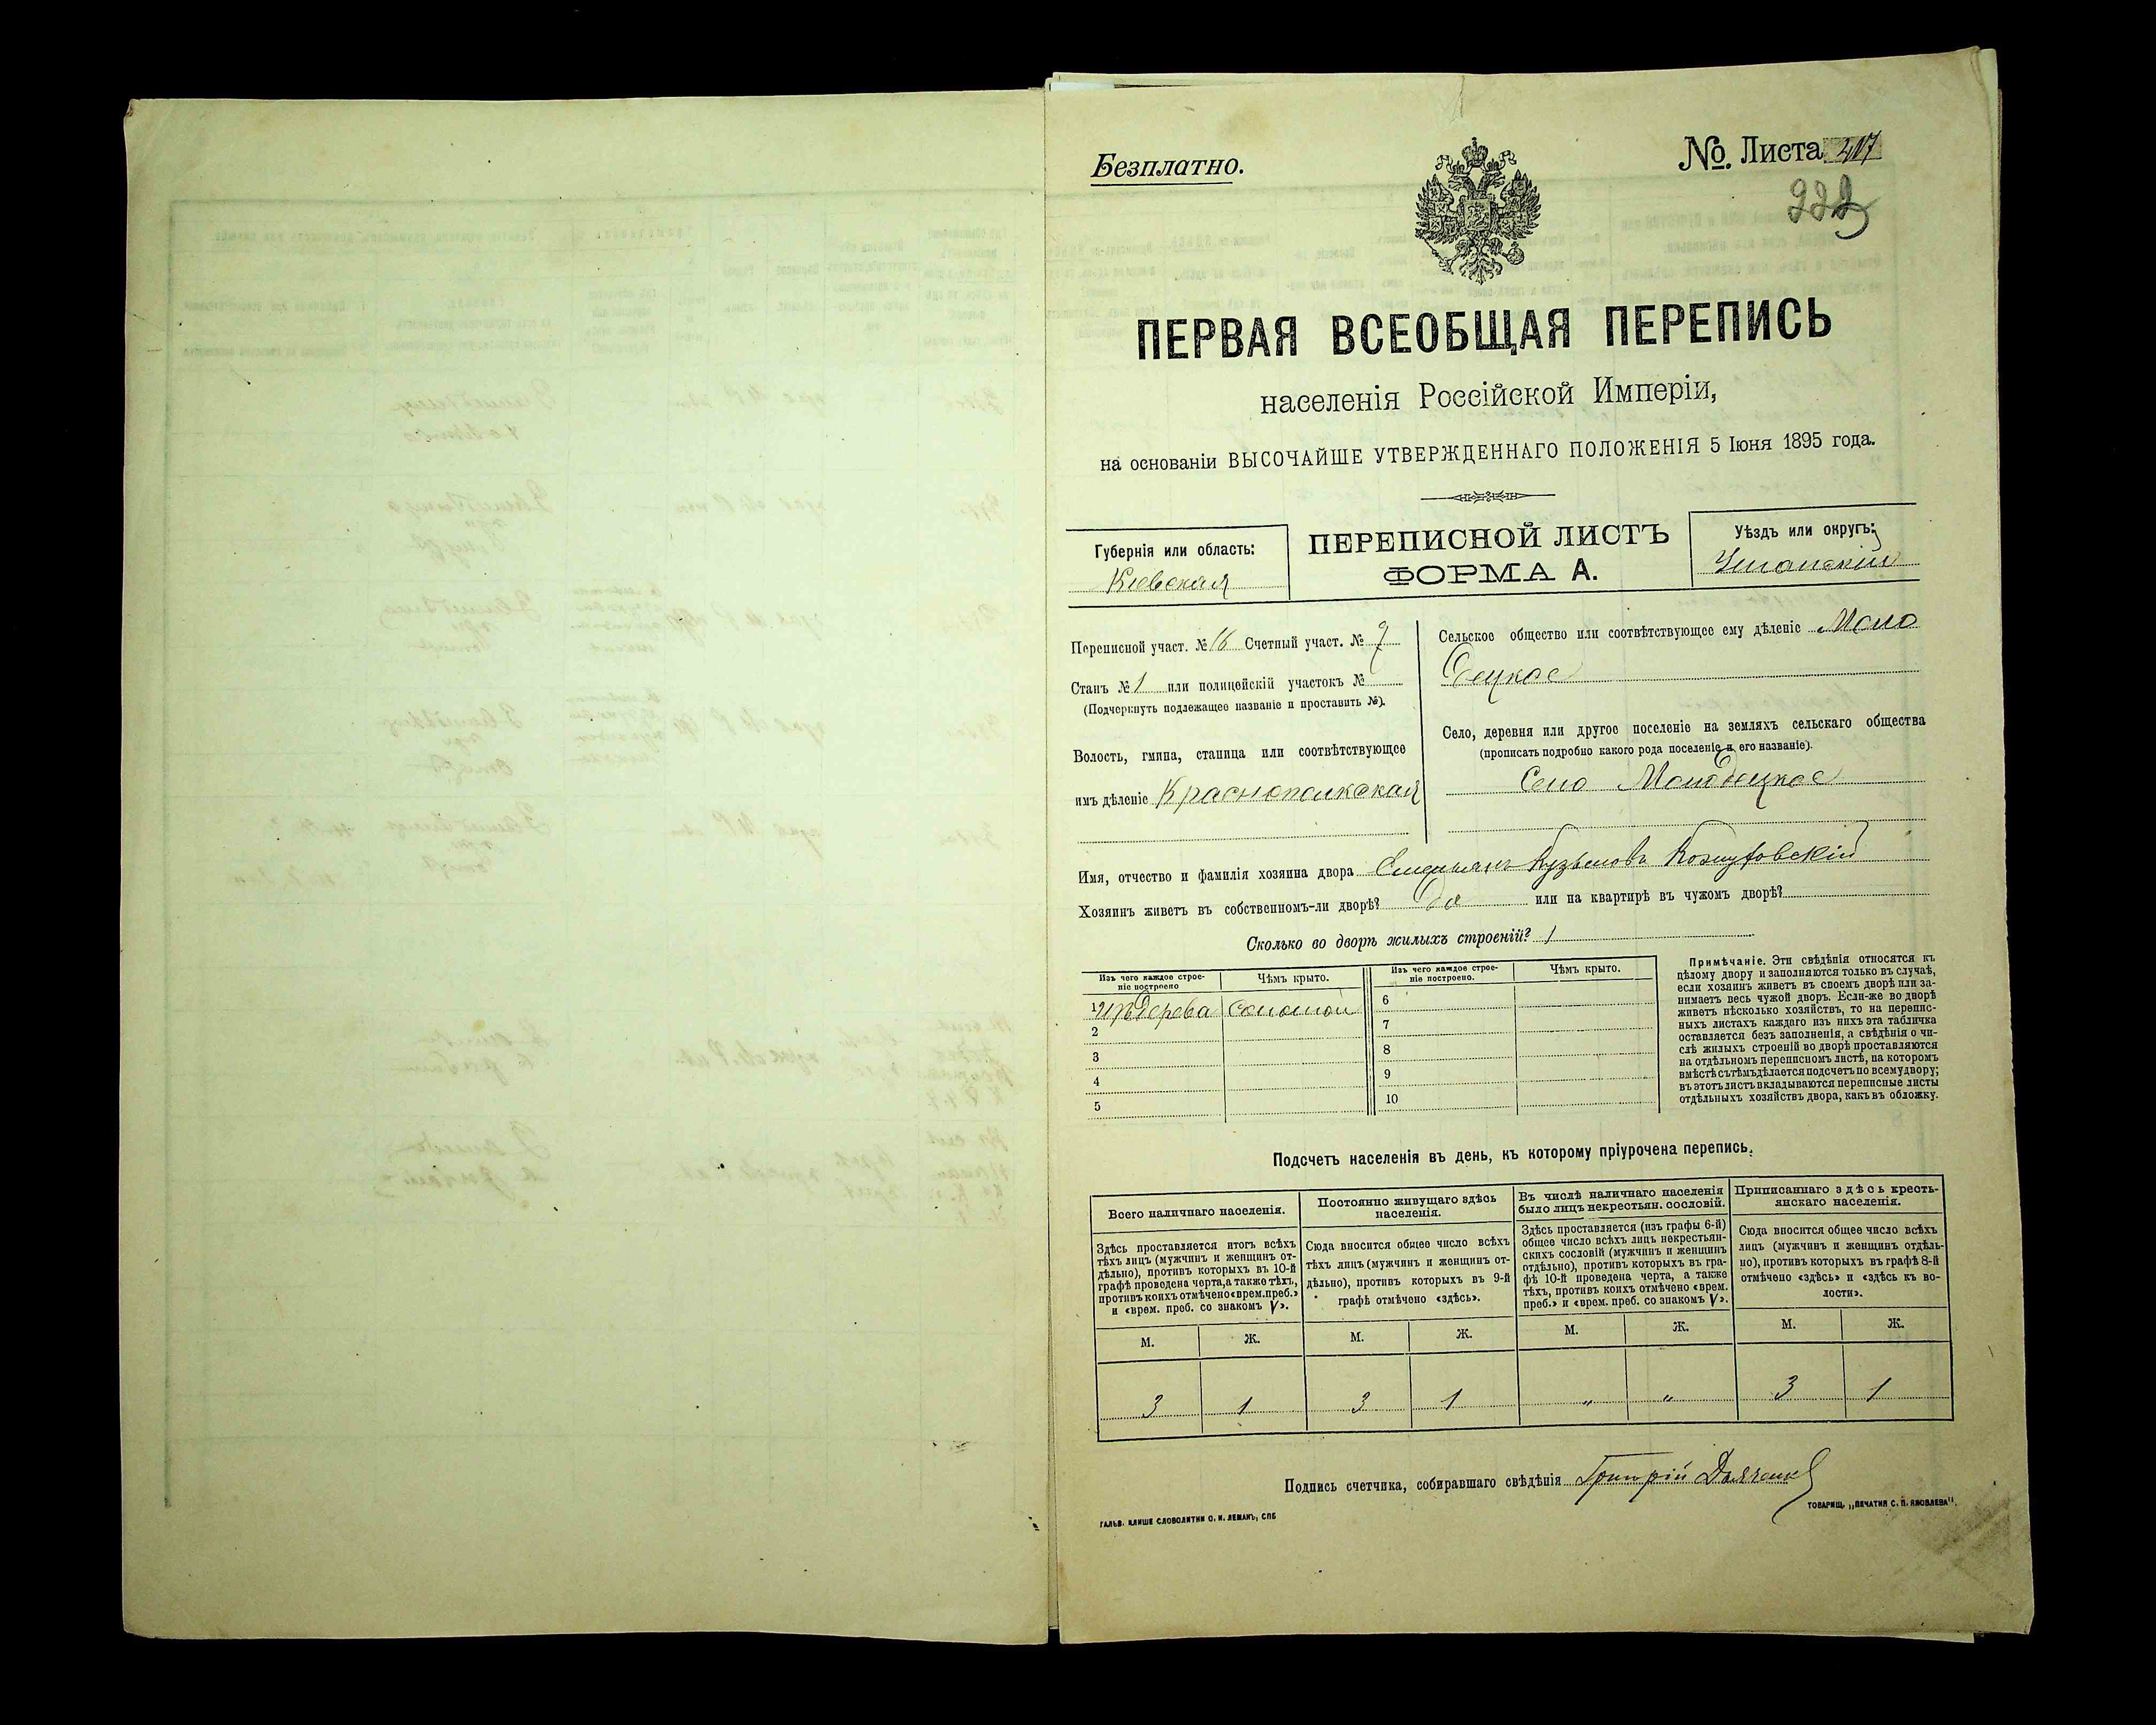 Безплатно.
№. Листа 217
222
ПЕРВАЯ ВСЕОБЩАЯ ПЕРЕПИСЬ
населенія Россійской Имперіи,
на основаніи ВЫСОЧАЙШЕ УТВЕРЖДЕННАГО ПОЛОЖЕНІЯ 5 Іюня 1895 года.
Губернія или область:
Кіевская
ПЕРЕПИСНОЙ ЛИСТЪ
ФОРМА А.
Уѣздъ или округъ:
Уманскій
Переписной участ. № 16 Счетный участ. № 9
Станъ № 1 или полицейскій участокъ №
(Подчеркнуть подлежащее названіе и проставить №).
Волость, гмина, станица или соотвѣтствующее
имъ дѣленіе Краснополкская
Сельское общество или соотвѣтствующее ему дѣленіе Моло
децкое
Село, деревня или другое поселеніе на земляхъ сельскаго общества
(прописать подробно какого рода поселеніе и его названіе).
Село Молодецкое
Имя, отчество и фамилія хозяина двора Емельянъ Кузьмовъ
Хозяинъ живетъ въ собственномъ-ли дворѣ? Да или на квартирѣ въ чужомъ дворѣ?
Сколько во дворѣ жилыхъ строеній? 1
Изъ чего каждое строе-
ніе построено
Чѣмъ крыто.
Изъ чего каждое строе-
ніе построено.
Чѣмъ крыто.
1 Изъ дерева Соломой
2
3
4
5
6
7
8
9
10
Примѣчаніе. Эти свѣдѣнія относятся къ
цѣлому двору и заполняются только въ случаѣ,
если хозяинъ живетъ въ своемъ дворѣ или за-
нимаетъ весь чужой дворъ. Если-же во дворѣ
живетъ нѣсколько хозяйствъ, то на перепис-
ныхъ листахъ каждаго изъ нихъ эта табличка
оставляется безъ заполненія, а свѣдѣнія о чи-
слѣ жилыхъ строеній во дворѣ проставляются
на отдѣльномъ переписномъ листѣ, на которомъ
вмѣстѣ съ тѣмъ дѣлается подсчетъ по всему двору;
въ этотъ листъ вкладываются переписные листы
отдѣльныхъ хозяйствъ двора, какъ въ обложку.
Подсчетъ населенія въ день, къ которому пріурочена перепись.
Всего наличнаго населенія.
Постоянно живущаго здѣсь
населенія.
Въ числѣ наличнаго населенія
было лицъ некрестьян. сословій.
Приписаннаго здѣсь кресть-
янскаго населенія.
Здѣсь проставляется итогъ всѣхъ
тѣхъ лицъ (мужчинъ и женщинъ от-
дѣльно), противъ которыхъ въ 10-й
графѣ проведена черта, а также тѣхъ,
противъ коихъ отмѣчено «врем. преб.»
и «врем. преб. со знакомъ V».
Сюда вносится общее число всѣхъ
тѣхъ лицъ (мужчинъ и женщинъ от-
дѣльно), противъ которыхъ въ 9-й
графѣ отмѣчено «здѣсь».
Здѣсь проставляется (изъ графы 6-й)
общее число всѣхъ лицъ некрестьян-
скихъ сословій (мужчинъ и женщинъ
отдѣльно), противъ которыхъ въ гра-
фѣ 10-й проведена черта, а также
тѣхъ, противъ коихъ отмѣчено «врем.
преб.» и «врем. преб. со знакомъ V».
Сюда вносится общее число всѣхъ
лицъ (мужчинъ и женщинъ отдѣль-
но), противъ которыхъ въ графѣ 8-й
отмѣчено «здѣсь» и «здѣсь къ во-
лости».
М. Ж. М. Ж. М. Ж. М. Ж.
3 1 3 1 " " 3 1
Подпись счетчика, собиравшаго свѣдѣнія Григорій Дяченко
ГАЛЬВ. КЛИШЕ СЛОВОЛИТНИ О. И. ЛЕМАНЪ, СПБ
ТОВАРИЩ. „ПЕЧАТНЯ С. П. ЯКОВЛЕВА".